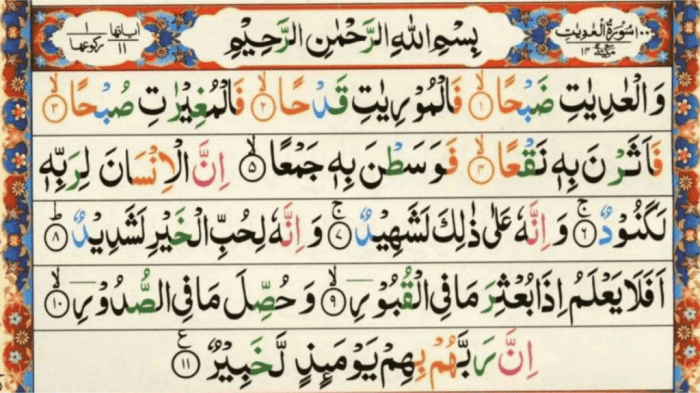 ١٠٠ سُوْرَةُ الْعٰدِيٰتِ
بِسْمِ اللهِ الرَّحْمٰنِ الرَّحِيْمِ
اٰيَاتُهَا ١١
رُكُوْعُهَا ١
وَالْعٰدِيٰتِ ضَبْحًا ۙ﴿١﴾ فَالْمُوْرِيٰتِ قَدْحًا ۙ﴿٢﴾ فَالْمُغِيْرٰتِ صُبْحًا ۙ﴿٣﴾
فَاَثَرْنَ بِهٖ نَقْعًا ۙ﴿٤﴾ فَوَسَطْنَ بِهٖ جَمْعًا ۙ﴿٥﴾ اِنَّ الْاِنْسَانَ لِرَبِّهٖ
لَكَنُوْدٌ ۚ﴿٦﴾ وَاِنَّهٗ عَلٰى ذٰلِكَ لَشَهِيْدٌ ۚ﴿٧﴾ وَاِنَّهٗ لِحُبِّ الْخَيْرِ لَشَدِيْدٌ ؕ﴿٨﴾
اَفَلَا يَعْلَمُ اِذَا بُعْثِرَ مَا فِى الْقُبُوْرِ ۙ﴿٩﴾ وَحُصِّلَ مَا فِى الصُّدُوْرِ ۙ﴿١٠﴾
اِنَّ رَبَّهُمْ بِهِمْ يَوْمَئِذٍ لَّخَبِيْرٌ ﴿١١﴾ ع